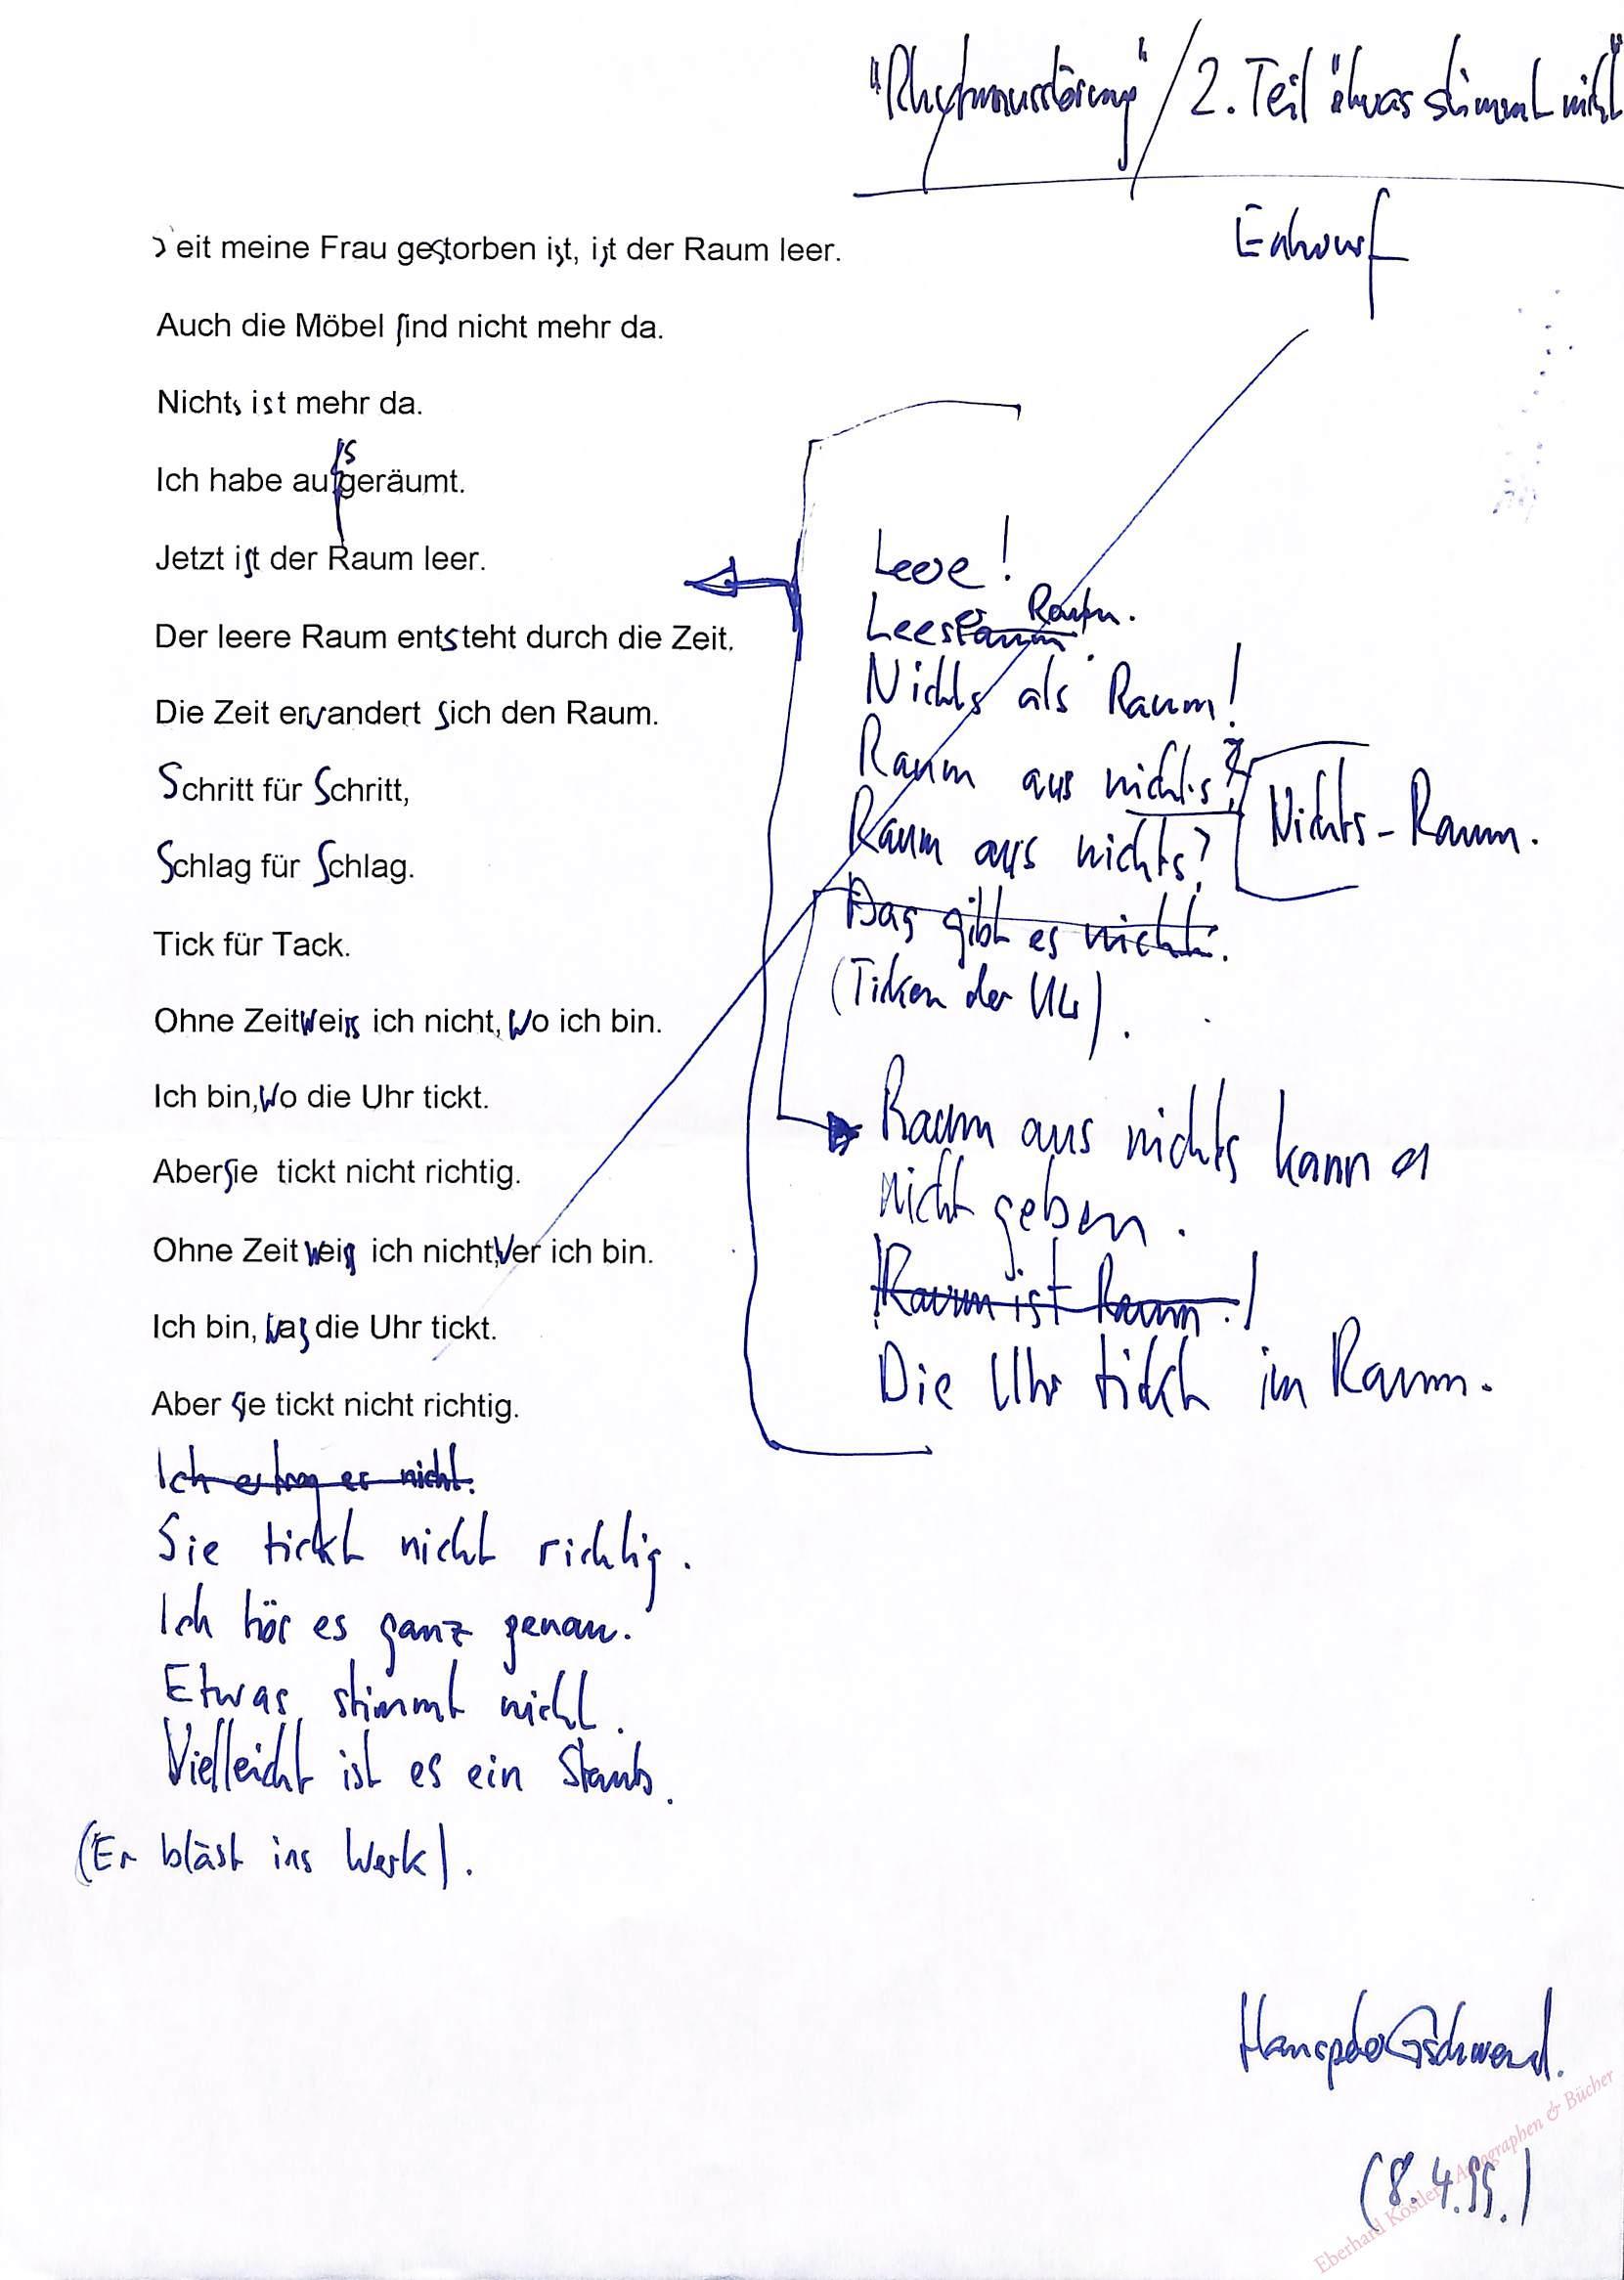 "Rhythmusstörung" / 2. Teil "etwas stimmt nicht"
Entwurf
Seit meine Frau gestorben ist, ist der Raum leer.
Auch die Möbel sind nicht mehr da.
Nichts ist mehr da.
Ich habe ausgeräumt.
Jetzt ist der Raum leer.
Der leere Raum entsteht durch die Zeit.
Die Zeit erwandert sich den Raum.
Schritt für Schritt,
Schlag für Schlag.
Tick für Tack.
Ohne Zeit weiss ich nicht, wo ich bin.
Ich bin, wo die Uhr tickt.
Aber sie tickt nicht richtig.
Ohne Zeit weiss ich nicht, wer ich bin.
Ich bin, was die Uhr tickt.
Aber sie tickt nicht richtig.
Ich ertrag es nicht.
Sie tickt nicht richtig.
Ich hör es ganz genau.
Etwas stimmt nicht.
Vielleicht ist es ein Staub.
(Er bläst ins Werk).
Leere!
Leerraum. Raum.
Nichts als Raum!
Raum aus nichts?
Raum aus nichts?
Nichts-Raum.
Das gibt es nicht.
(Ticken der Uhr).
Raum aus nichts kann es
nicht geben.
Raum ist Raum.
Die Uhr tickt im Raum.
Hanspeter Gschwend.
(8.4.99.)
Eberhard Köstler Autographen & Bücher